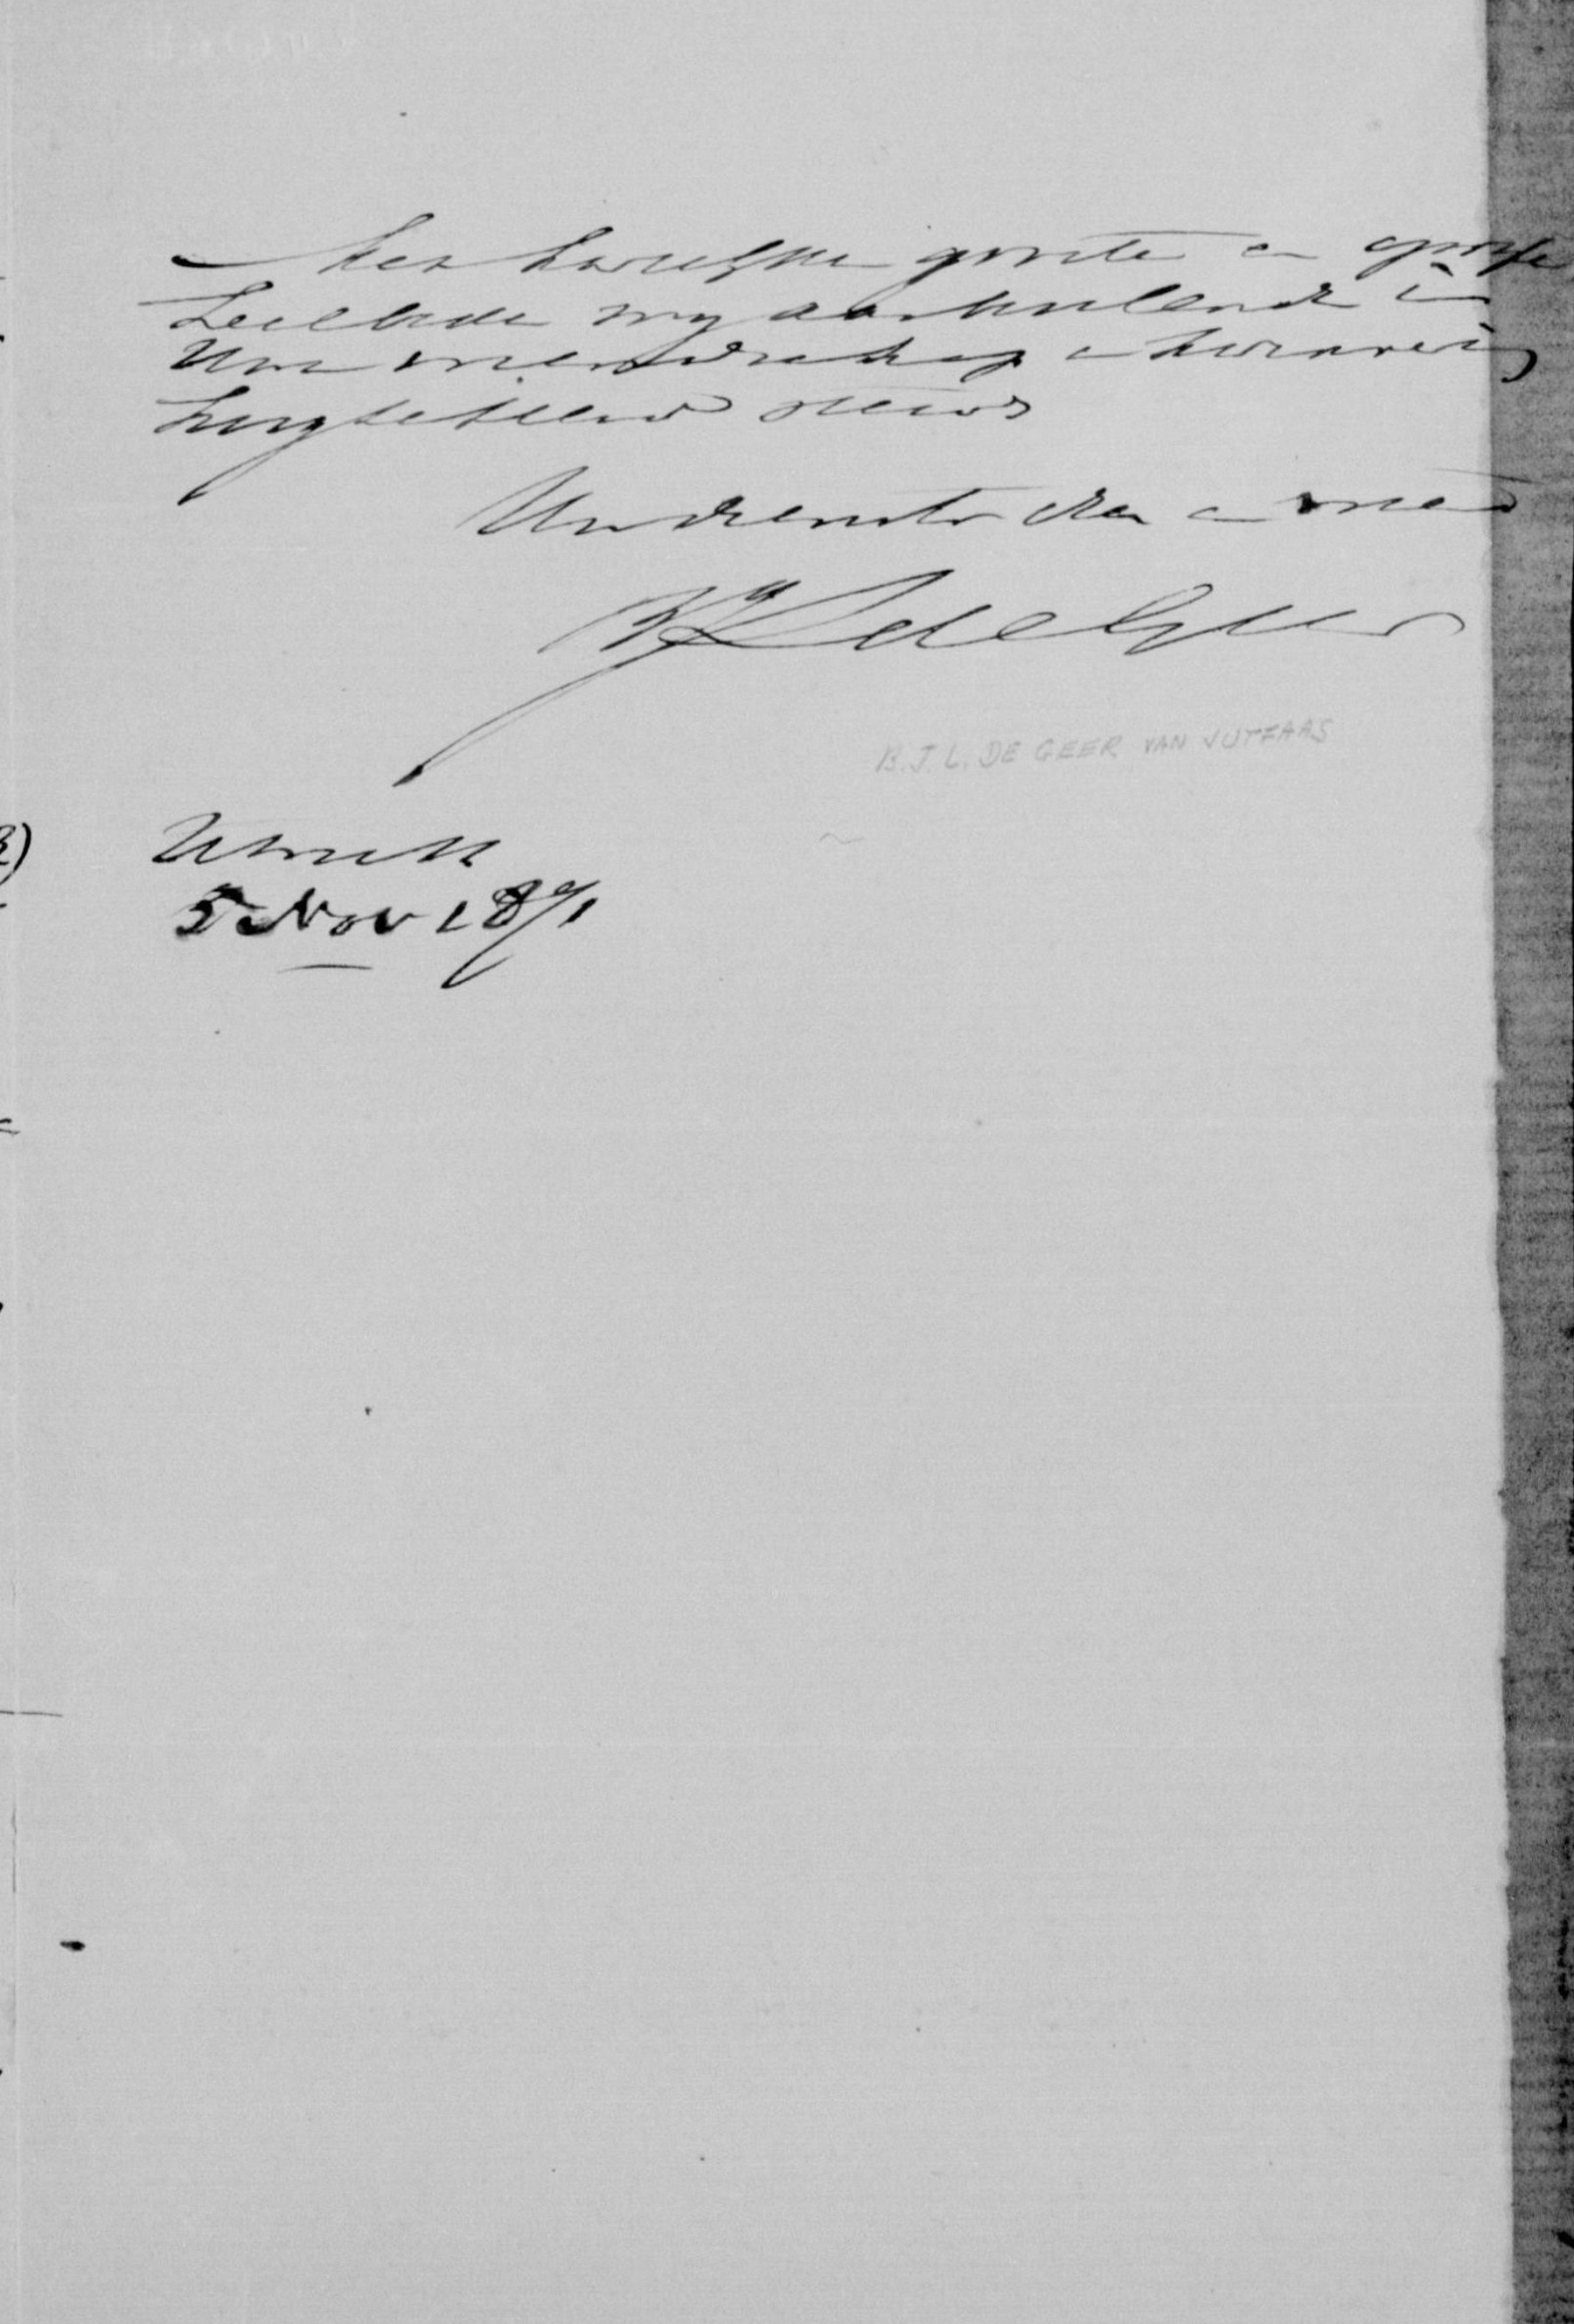 Met hartelijke groete en oprechte
heilbede mij aanbevelende in
Uwe vriendschap en herinnering
hoogachtend steeds
Uw dienstv. dr. en vriend
BJL de Geer
B.J.L. DE GEER VAN JUTFAAS
Utrecht
5 Nov 1871